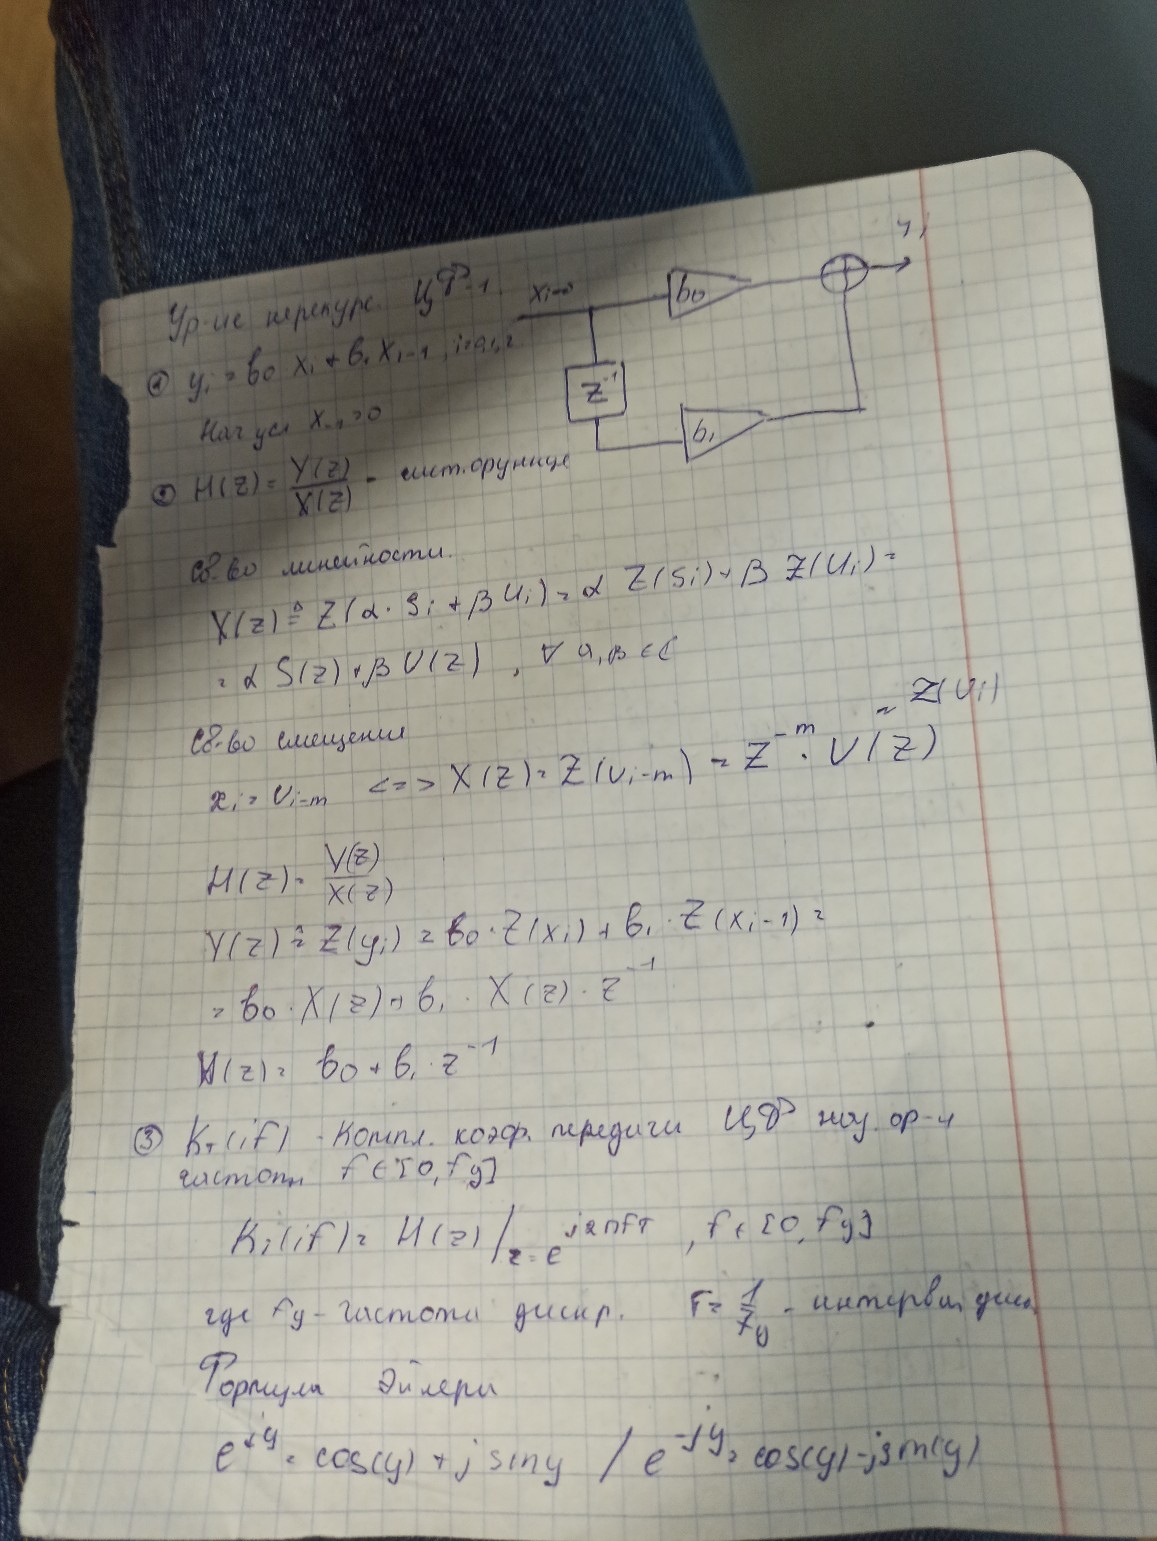 Ур-ие нерекурс. ЦФ-1
xi → b0 yi
① yi = b0 xi + b1 xi-1, i=0,1,2
z^-1
Нач усл x-1 = 0
b1
② H(z) = Y(z)/X(z) - сист. функция
Св-во линейности.
Y(z) ≙ Z(α · Si + β Ui) = α Z(Si) + β Z(Ui) =
= α S(z) + β U(z) , ∀ α, β ∈ C
Св-во смещения
= Z(Ui)
xi = Ui-m <=> X(z) = Z(Ui-m) = Z^-m · U(z)
H(z) = Y(z)/X(z)
Y(z) ≙ Z(yi) = b0 · Z(xi) + b1 · Z(xi-1) =
= b0 · X(z) + b1 · X(z) · z^-1
H(z) = b0 + b1 · z^-1
③ KT(jf) - Компл. коэф. передачи ЦФ
частоты f ∈ [0, fg]
Ki(jf) = H(z) / z = e^j2πfT , f ∈ [0, fg]
где fg - частота дискр. T = 1/fg - интервал диск
Формула Эйлера
e^jy = cos(y) + j siny / e^-jy = cos(y) - jsin(y)